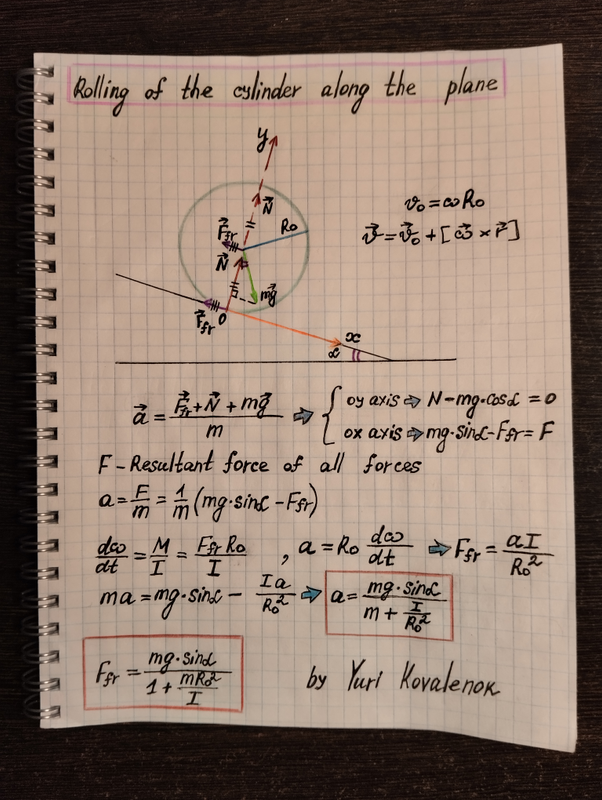 Rolling of the cylinder along the plane
y
N⃗
R₀
v₀ = ωR₀
v⃗ = v⃗₀ + [ω⃗ × r⃗]
F⃗fr
N⃗
mg⃗
F⃗fr
O
x
α
a⃗ = (F⃗fr + N⃗ + mg⃗)/m ⇨ { oy axis ⇨ N - mg·cosα = 0
ox axis ⇨ mg·sinα - Ffr = F
F - Resultant force of all forces
a = F/m = 1/m (mg·sinα - Ffr)
dω/dt = M/I = FfrR₀/I , a = R₀ dω/dt ⇨ Ffr = aI/R₀²
ma = mg·sinα - Ia/R₀² ⇨ a = mg·sinα/(m + I/R₀²)
Ffr = mg·sinα/(1 + mR₀²/I)
by Yuri Kovalenok